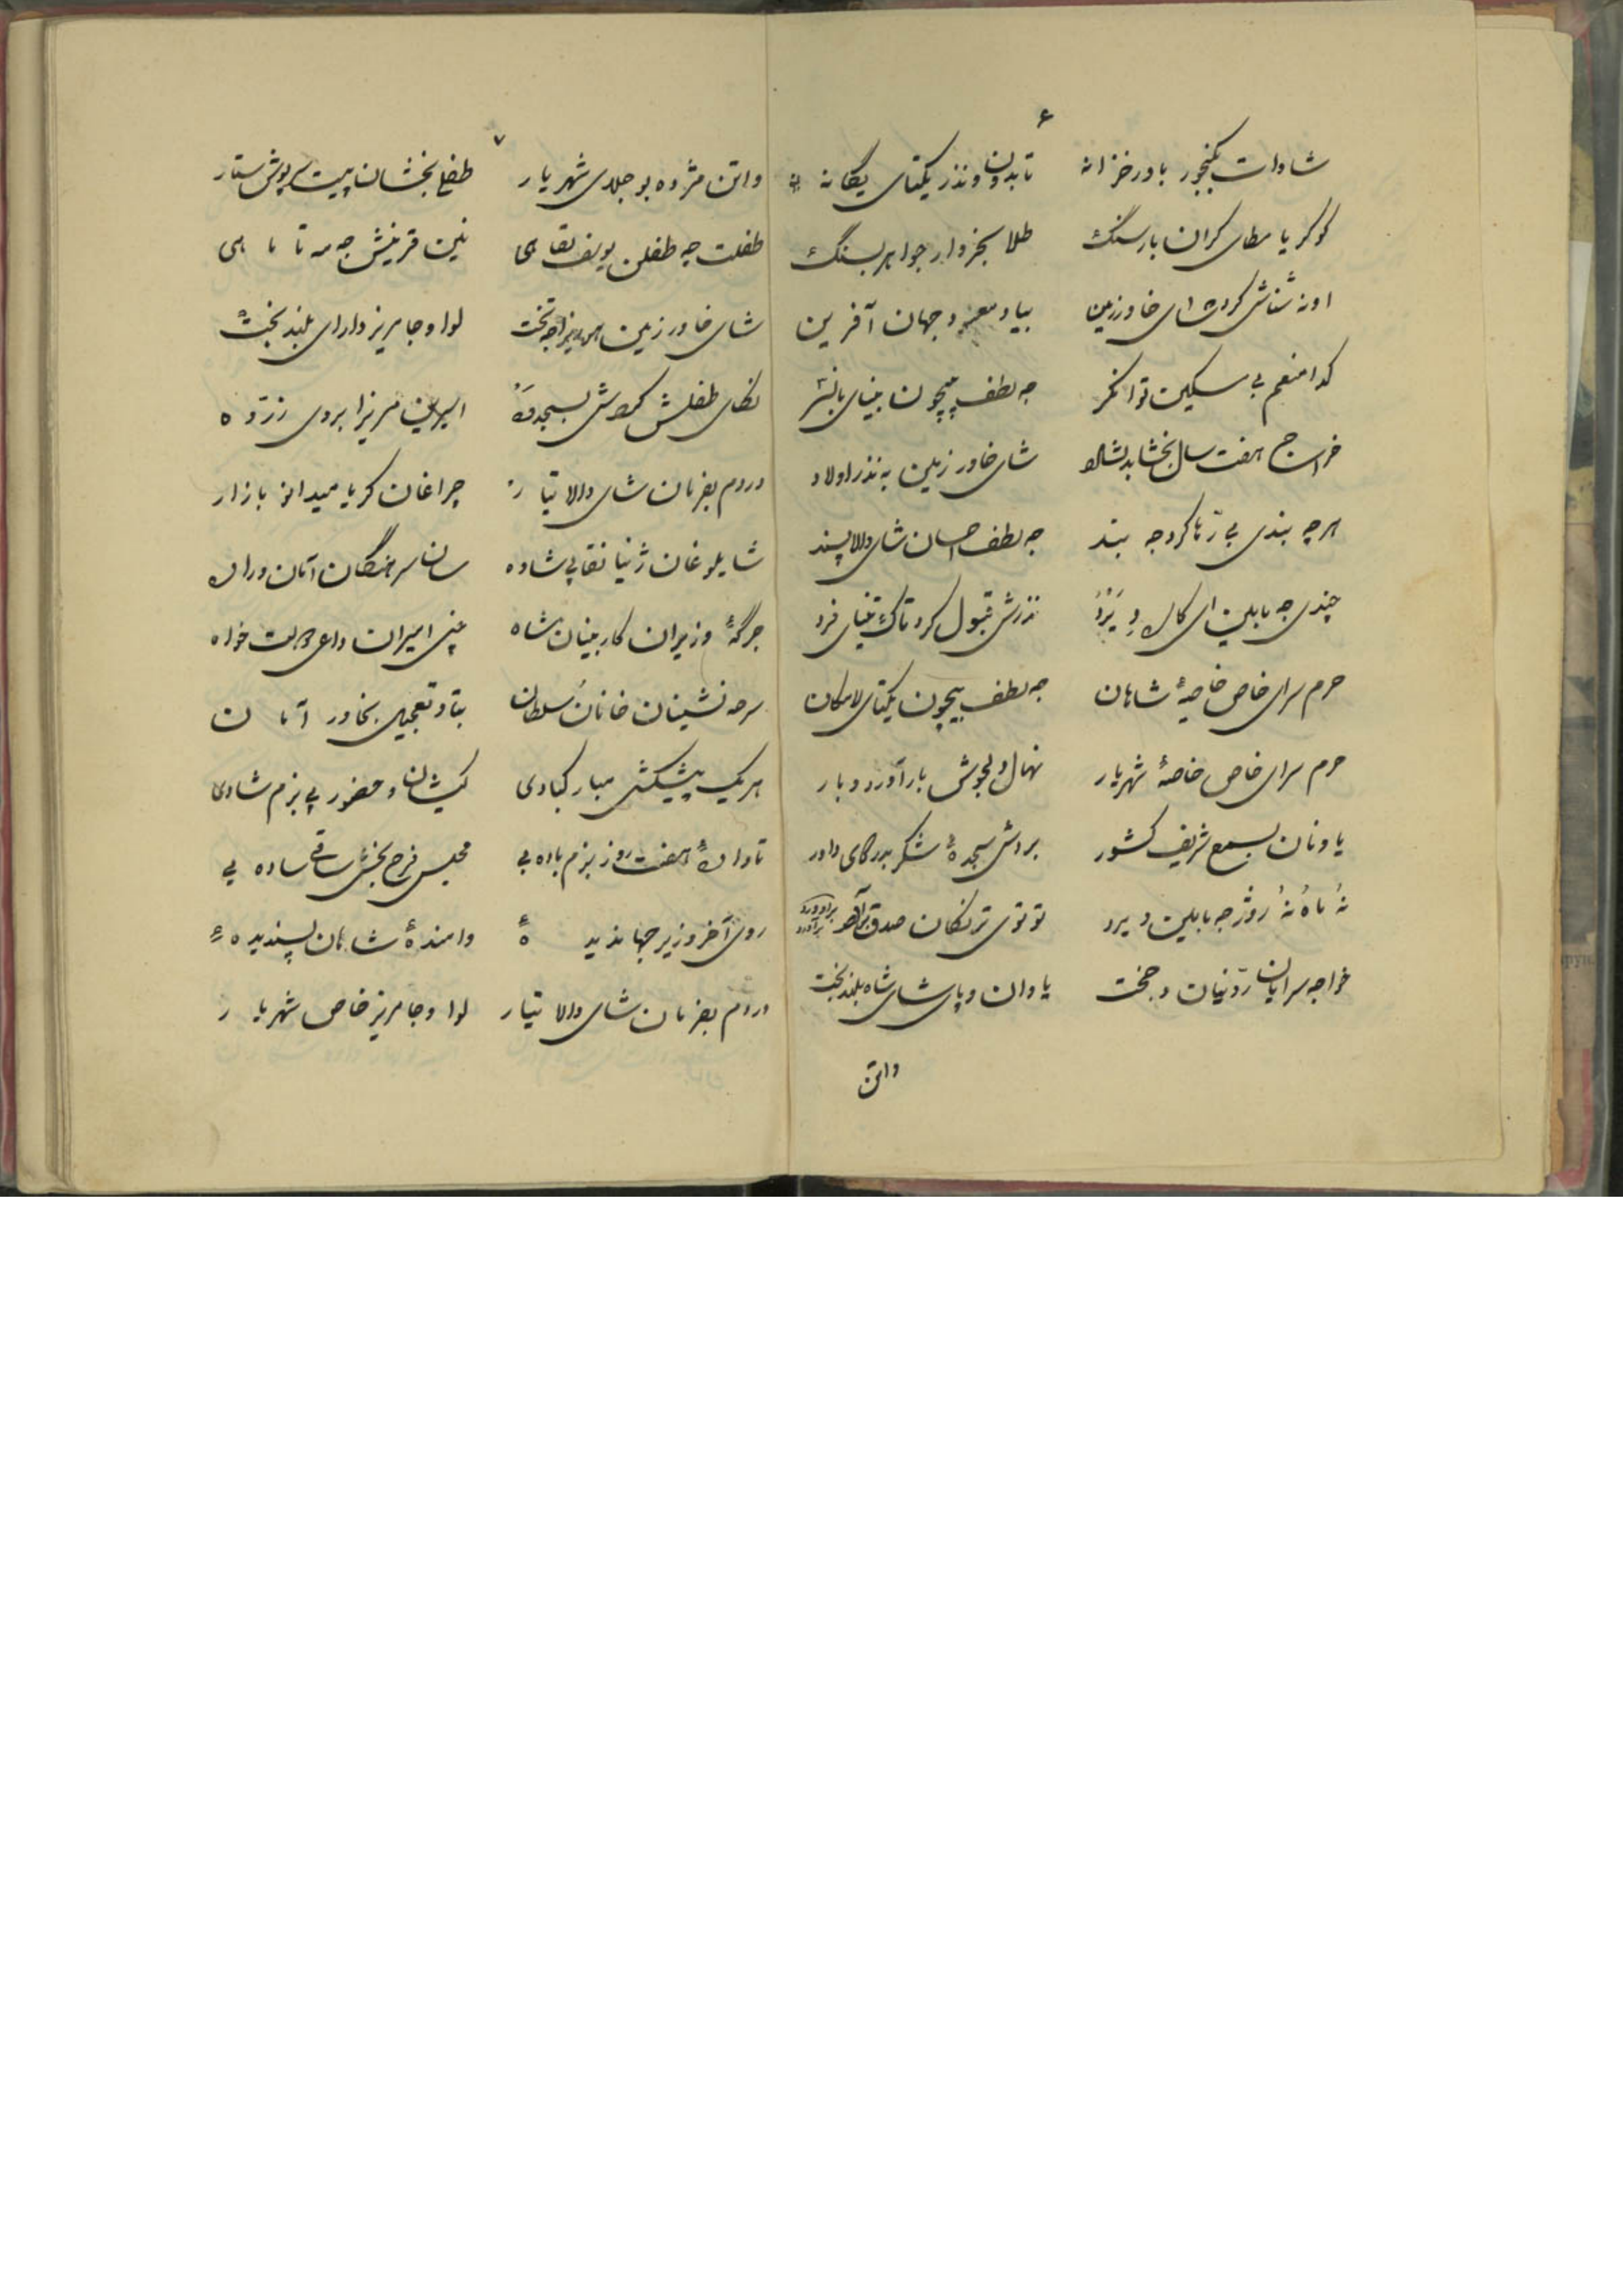 ۶
شادات گنجور بادر خزانه تا بدون و نذر یکتای یگانه
کو کریا مطای کران بار سنگ طلا بخروار جواهر بسنگ
او نه شناش کرده شای خاور زمین بیاد معبود جهان آفرین
کدا منعم بی مسکین توانگر جه لطف بیچون بینای بانشر
خراج هفت سال بخشا بدلشاد شای خاور زمین به نذر اولاد
هر چه بندی بی رها کرد جه بند جه لطف احسان شای والا پسند
چندی جه مابلین ای کال و یرد نذرش قبول کرد تاک تنیای فرد
حرم سرای خاص خاصهٔ شاهان جه لطف بیچون یکتای لامکان
حرم سرای خاص خاصهٔ شهریار نهال دلجوش بار آورد و بار
یاونان بسمع شریف کشور بردش سجدهٔ شکر بدرگای داور
نُه ماه نُه روژ جه مابلین ویرد توتوی ترنکان صدق برآورد
خواجه سرایان ردنیان وجخت یاوان و پای شای شاه بلند بخت
واتن
۷
واتن مژده بو جلای شهریار طفل بخشان پیت پوش ستار
طفلت چه طفلن یوسف لقای نین قرینش جه مه تا ماهی
شای خاور زمین تخت لوا وجا مریز دارای بلند بخت
لکای طفلش بسجده امیرین مریزا بروی زرده
دروم بفرمان شای والا تبار چراغان کریا میدان بازار
شا یلوغان ژنیا نقاپی شاده سان سرهنگان آمان وراه
جرگهٔ وزیران کاربینان شاه چنی امیران داعی دولت خواه
سرحد نشینان خانان سلطان بتاو تعجیل بخاور آمان
هریک پیشکش مبارکبادی کیشان و حضور پی بزم شادی
تا واده هفت روز بزم باده بی مجلس فرح بخش ساقی ساده بی
روی آخر وزیر جهاندیده وامندهٔ شاهان پسندیده
دروم بفرمان شای والا تبار لوا وجا مریز خاص شهریار